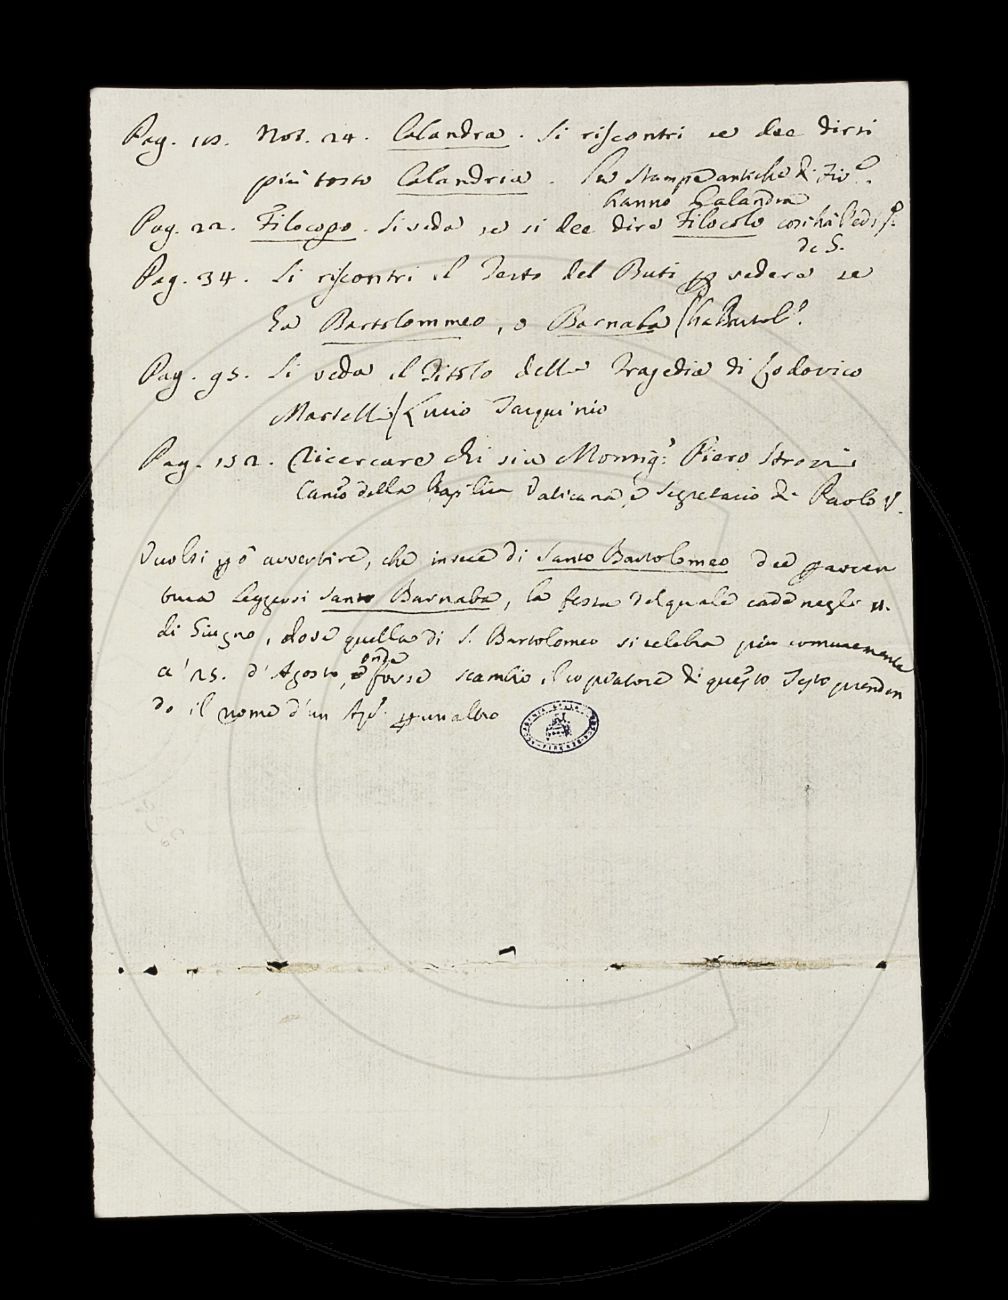 Pag. 10. Not. 24. Calandra. Si riscontri se dee dirsi
più tosto Calandria. Le Stampe antiche di
hanno Calandra
Pag. 22. Filocopo. Si veda se si dee dire Filocolo così ha l'ediz.e
de S.
Pag. 34. Si riscontri il Testo del Buti p vedere se
ha Bartolommeo, o Barnaba / ha Bartol.o
Pag. 95. Si veda il Titolo della Tragedia di Lodovico
Martelli / Lucio Tarquinio
Pag. 152. Ricercare chi sia Monsig.r Piero Strozzi
Can.co della Basilica Vaticana, e Segretario di Paolo V.
Vuolsi pò avvertire, che invece di Santo Bartolomeo dee p avven
tura leggersi Santo Barnaba, la festa del quale cade negli 11.
di Giugno, dove quella di S. Bartolomeo si celebra più comunemente
a' 25. d'Agosto, onde forse scambiò il copiatore di questo Testo prenden
do il nome d'un Ap. p un altro